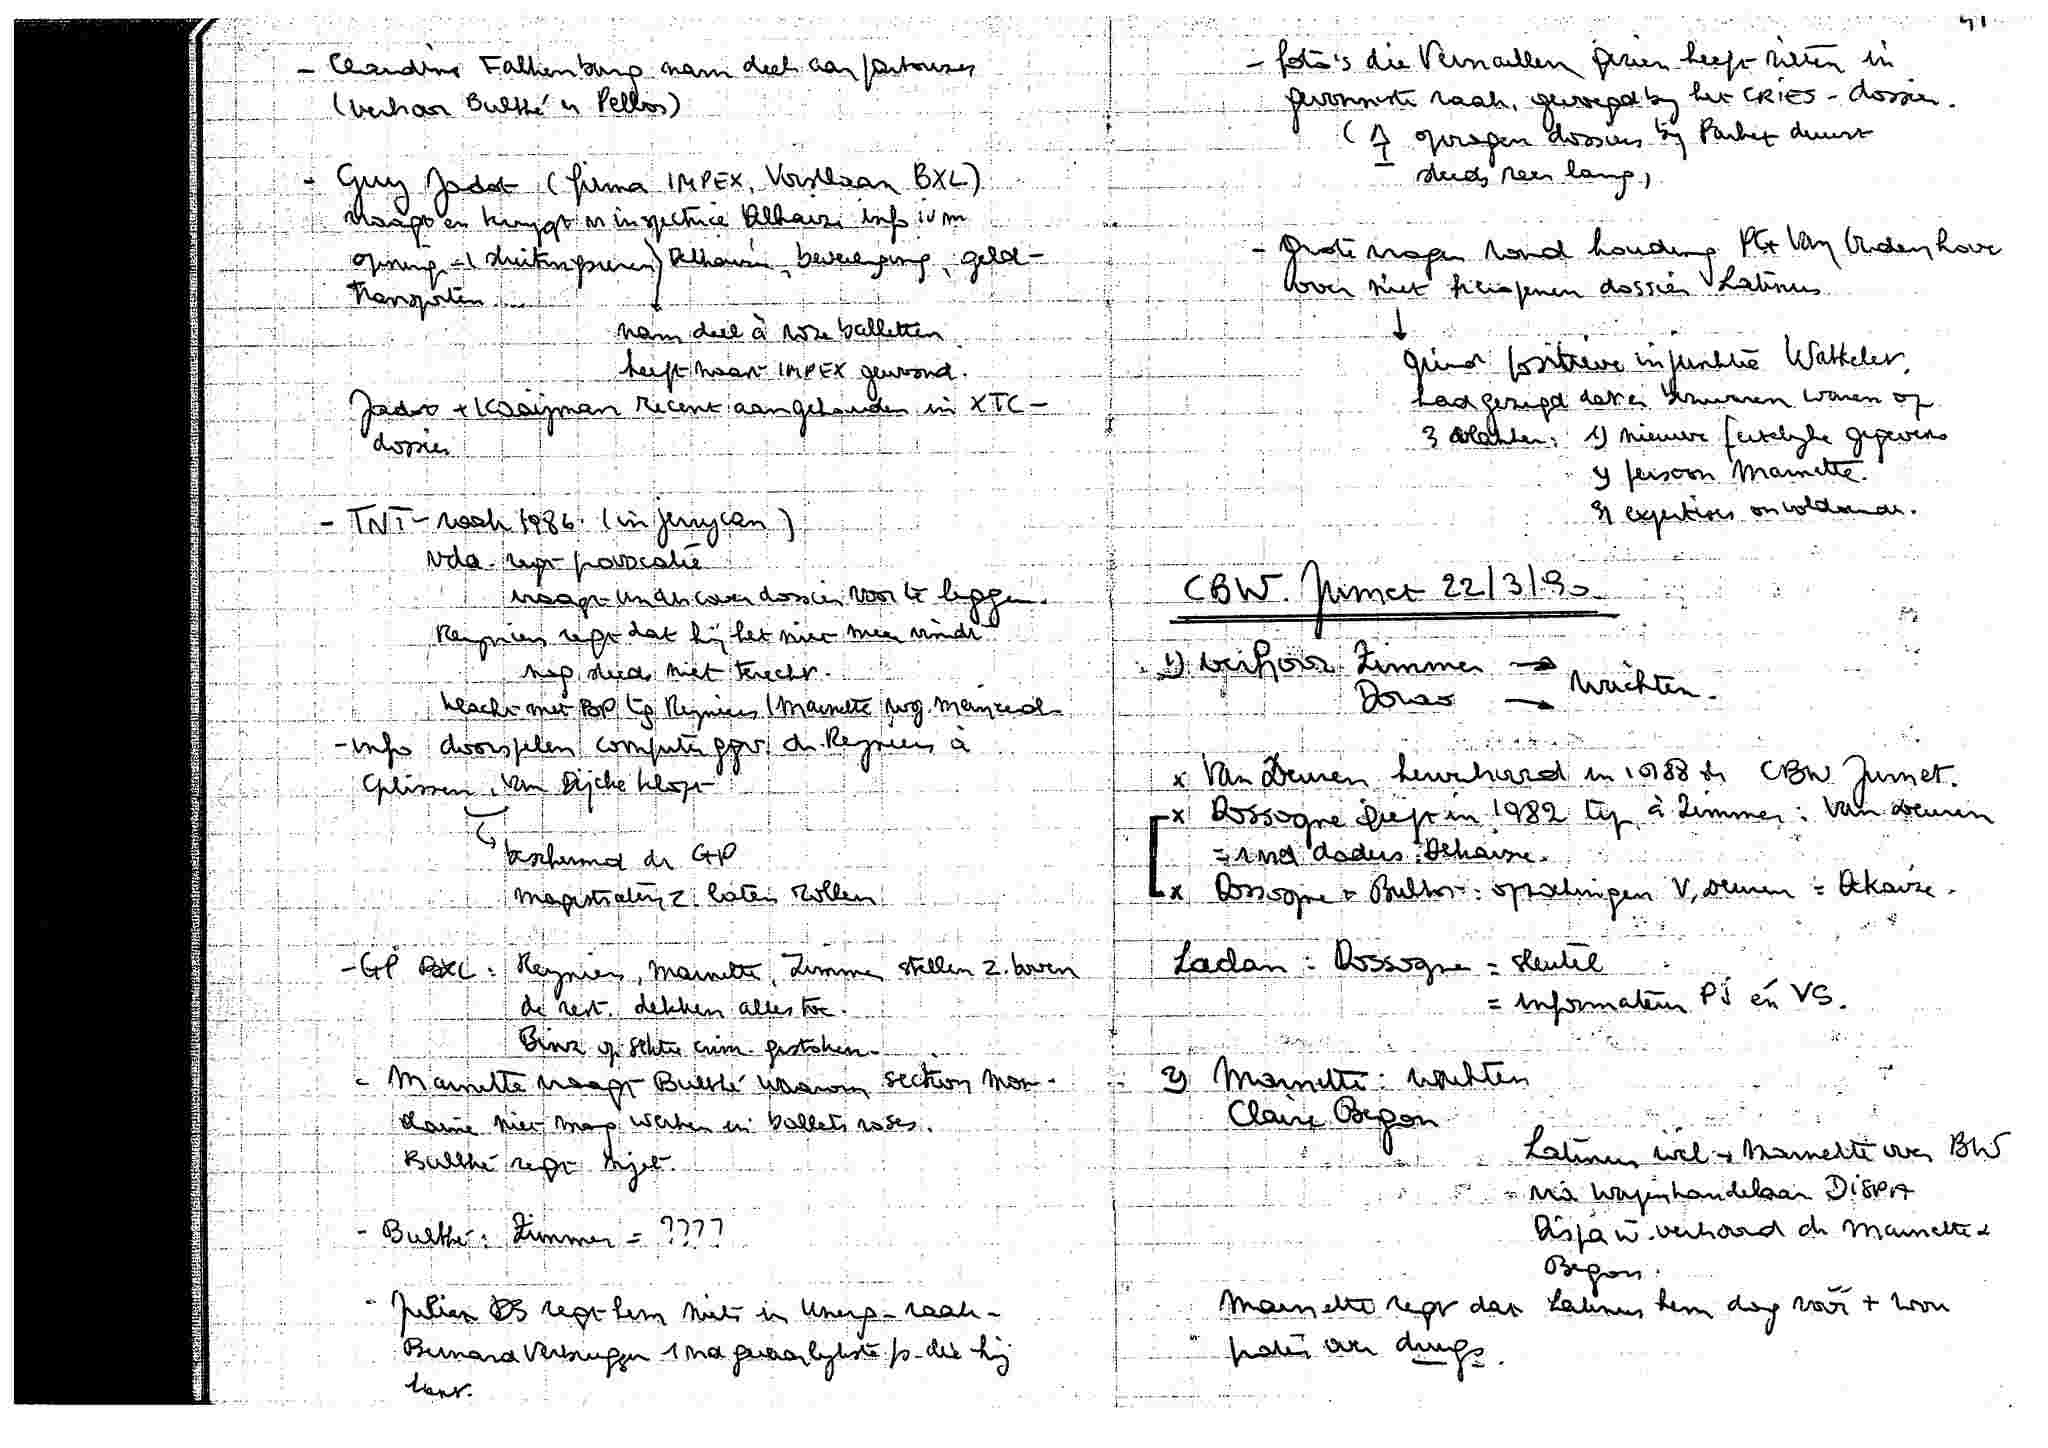 - Claudine Falkenburg nam deel aan partouzes
(verhoor Bulthé en Pellos)
- Guy Jadot (firma IMPEX, Vorstlaan BXL)
vraagt en krijgt v inspectrice Delhaize info ivm
opening- sluitingsuren Delhaize, beveiliging, geld-
transporten ...
nam deel à roze balletten
heeft naast IMPEX gewoond.
Jadot + Kooijman recent aangehouden in XTC-
dossier
- TNT-zaak 1986. (in jerrycan)
Vda. zegt provocatie
vraagt undercover dossier voor te leggen.
Reyniers zegt dat hij het niet meer vindt
nog steeds niet terecht.
klacht met BP tg Reyniers / Marnette wg. meineed
- info doorspelen computer ggv. dr Reyniers à
Glissen, Van Dijcke klopt
beschermd dr GP
magistraten z. laten rollen
- GP BXL: Reyniers, Marnette, Zimmer stellen z. boven
de rest. dekken alles toe.
Binz op sektie crim. gestoken.
- Marnette vraagt Bulthé waarom section mon-
daine niet mag werken in ballets roses.
Bulthé zegt njet.
- Bulthé: Zimmer = ????
- zegt hem niets in zaak-
Bernard Verbruggen 1 vd gevaarlijkste p. die hij
kent.
41
- foto's die Vernaillen gezien heeft zitten in
gevonniste zaak, gevoegd bij het CRIES-dossier.
( opvragen dossiers bij Parket duurt
steeds zeer lang)
- Grote vragen rond houding PG Van Oudenhove
over niet heropenen dossier Latinus
↓
geen positieve injunktie Wathelet.
had gezegd dat er bezwaren waren op
3 vlakken: 1) nieuwe feitelijke gegevens
2) persoon Marnette.
3) expertises onvoldoende.
CBW. Jumet 22/3/90.
1) verhoor Zimmer →
Dosso → wachten.
x Van Deuren herverhoord in 1988 dr CBW Jumet.
x Dossogne geeft in 1982 tip à Zimmer: Van Deuren
= 1 vd daders Delhaize.
x Dossogne + Bultot: opzoekingen V. Deuren = Delhaize.
Ladan: Dossogne = sleutel
= informateur PJ én VS.
2) Marnette: wachten
Claire Begon
Latinus Marnette over BW
via wagenhandelaar DISPA
Dispa w. verhoord dr Marnette +
Begon.
Marnette zegt dat Latinus hem dag vóór + wou
praten over drugs.